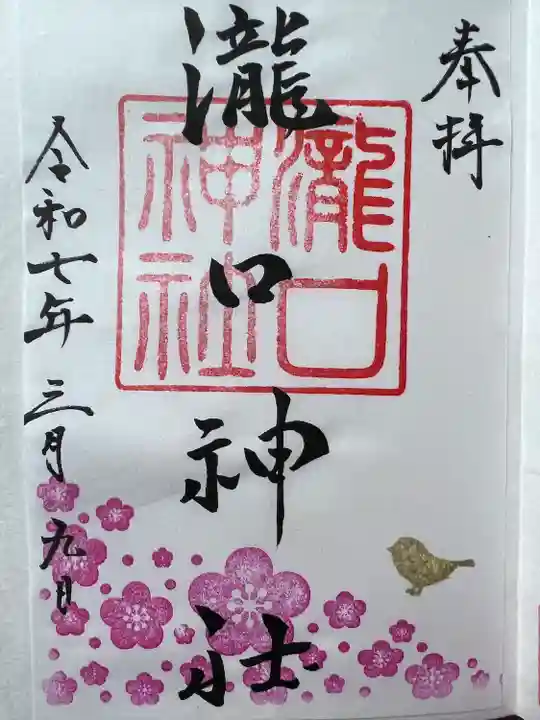 奉拝
瀧口神社
瀧口
神社
令和七年 三月 九日